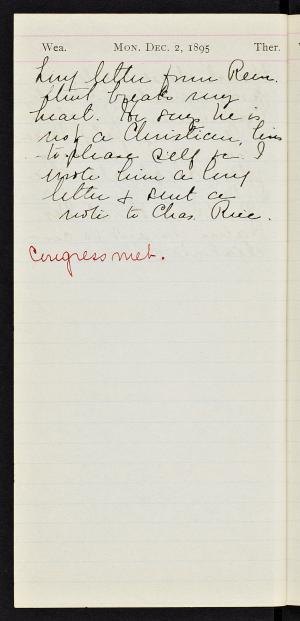 Wea. MON. DEC. 2, 1895 Ther.
Long letter from Rem.
that breaks my
heart. He says he is
not a Christian, lives
to please self &c. I
wrote him a long
letter & sent a
note to Chas. Rice.
Congress met.